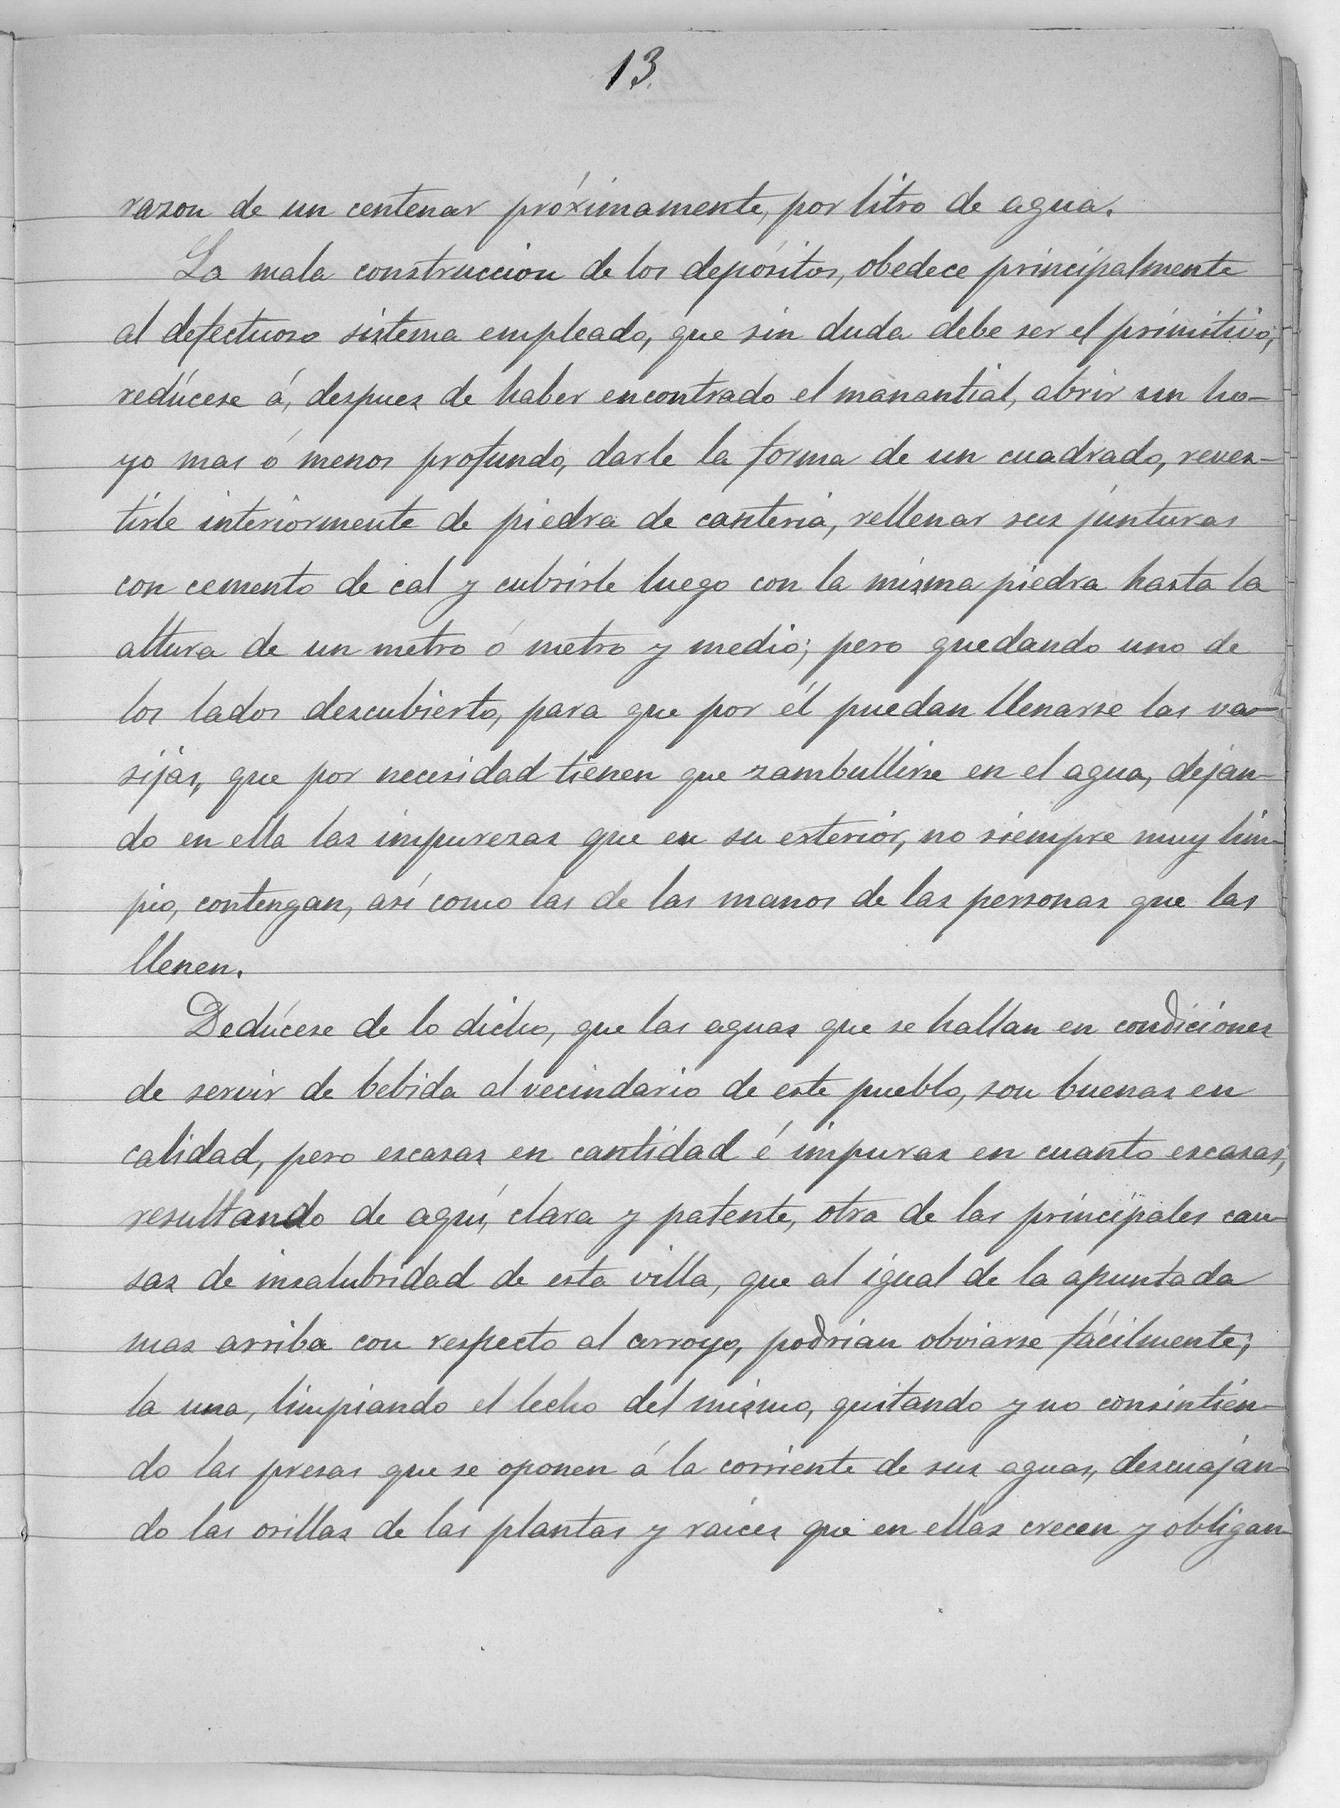 13.
razon de un centenar próximamente, por litro de agua.
La mala construccion de los depósitos, obedece principalmente
al defectuoso sistema empleado, que sin duda debe ser el primitivo;
redúcese á, despues de haber encontrado el manantial, abrir un ho-
yo mas ó menos profundo, darle la forma de un cuadrado, reves-
tirle interiormente de piedra de cantería, rellenar sus junturas
con cemento de cal y cubrirle luego con la misma piedra hasta la
altura de un metro ó metro y medio; pero quedando uno de
los lados descubierto, para que por él puedan llenarse las va-
sijas, que por necesidad tienen que zambullirse en el agua, dejan-
do en ella las impurezas que en su exterior, no siempre muy lim-
pio, contengan, así como las de las manos de las personas que las
llenen.
Dedúcese de lo dicho, que las aguas que se hallan en condiciones
de servir de bebida al vecindario de este pueblo, son buenas en
calidad, pero escasas en cantidad é impuras en cuanto escasas;
resultando de aquí, clara y patente, otra de las principales cau-
sas de insalubridad de esta villa, que al igual de la apuntada
mas arriba con respecto al arroyo, podrian obviarse fácilmente;
la una, limpiando el lecho del mismo, quitando y no consintien-
do las presas que se oponen á la corriente de sus aguas, descuajan-
do las orillas de las plantas y raices que en ellas crecen y obligan-